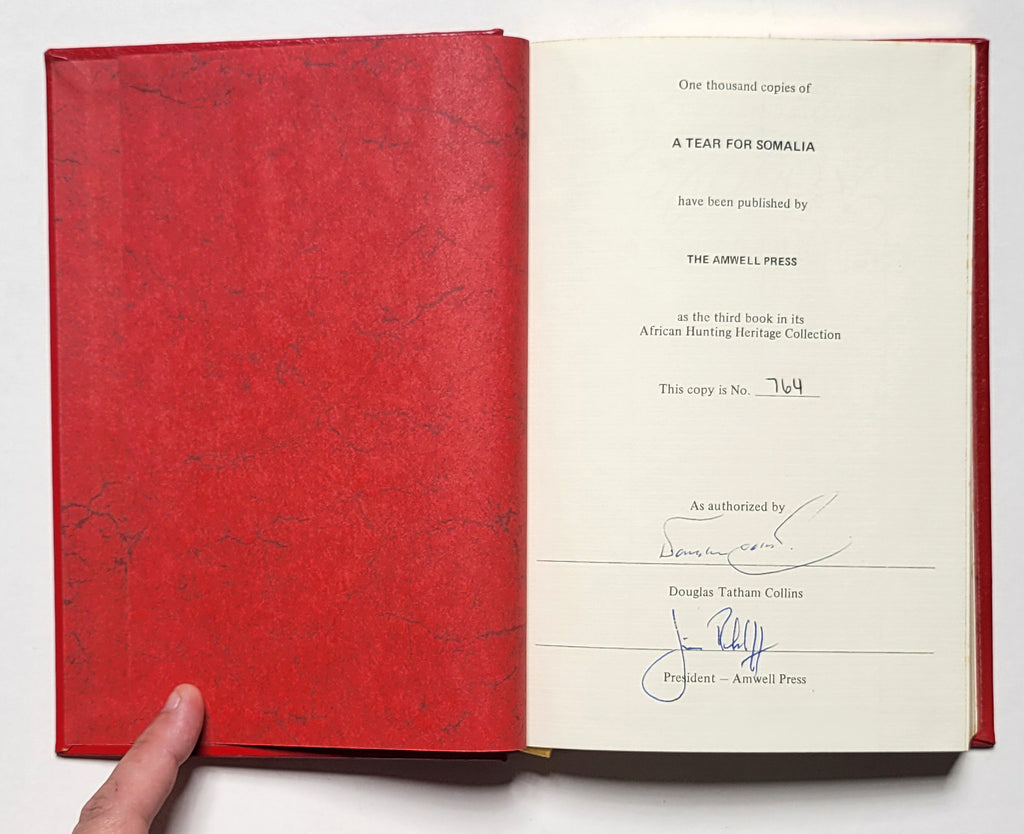 One thousand copies of
A TEAR FOR SOMALIA
have been published by
THE AMWELL PRESS
as the third book in its
African Hunting Heritage Collection
This copy is No. 764
As authorized by
Douglas Tatham Collins
Jim
President — Amwell Press